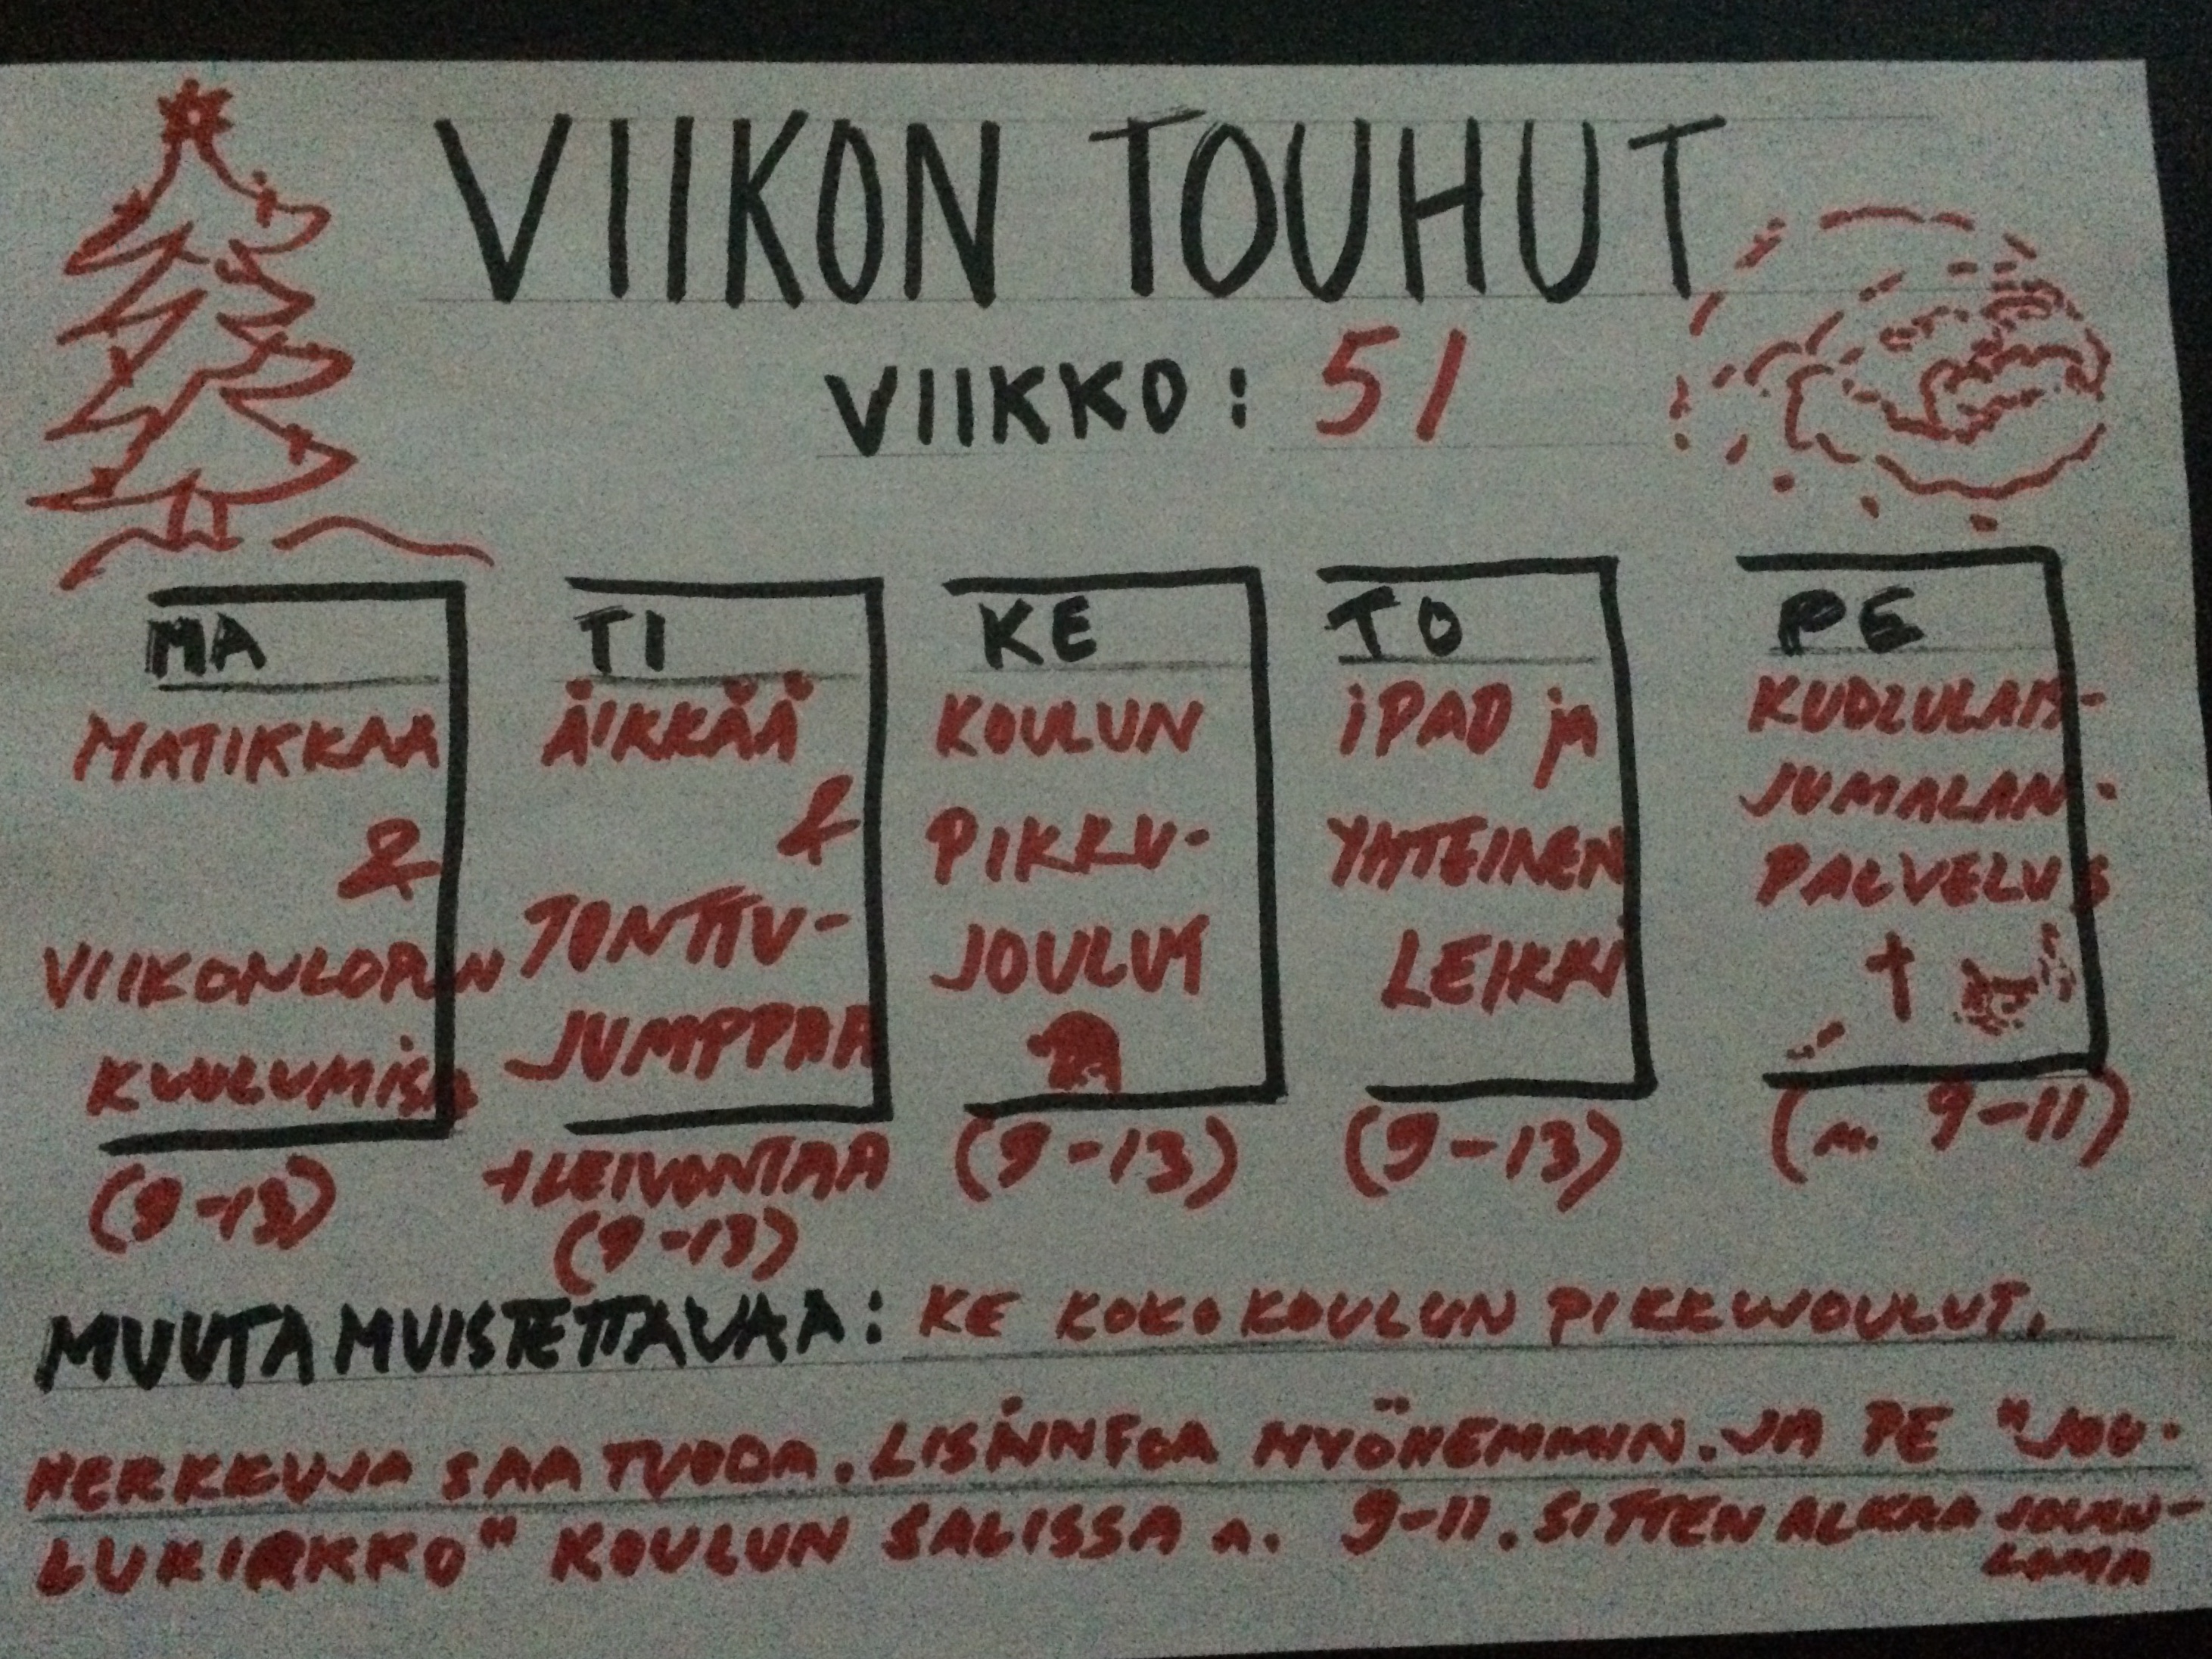 VIIKON TOUHUT
VIIKKO: 51
MA
MATIKKAA
&
VIIKONLOPUN
KUULUMISA
(9-13)
TI
ÄIKKÄÄ
&
TONTTU-
JUMPPAA
+LEIVONTAA
(9-13)
KE
KOULUN
PIKKU-
JOULUT
(9-13)
TO
iPAD ja
YHTEINEN
LEIKKI
(9-13)
PE
JUMALAN-
PALVELUS
(n. 9-11)
MUUTA MUISTETTAVAA: KE KOKO KOULUN PIKKUJOULUT.
HERKKUJA SAA TUODA. LISÄINFOA MYÖHEMMIN. JA PE "JOU-
LUKIRKKO" KOULUN SALISSA n. 9-11. SITTEN ALKAA JOULU-
LOMA